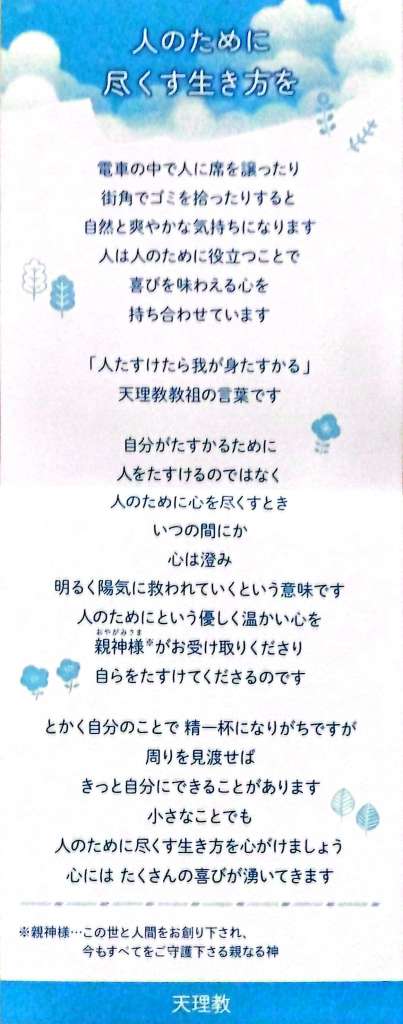 人のために
尽くす生き方を
電車の中で人に席を譲ったり
街角でゴミを拾ったりすると
自然と爽やかな気持ちになります
人は人のために役立つことで
喜びを味わえる心を
持ち合わせています
「人たすけたら我が身たすかる」
天理教教祖の言葉です
自分がたすかるために
人をたすけるのではなく
人のために心を尽くすとき
いつの間にか
心は澄み
明るく陽気に救われていくという意味です
人のためにという優しく温かい心を
おやがみさま
親神様※がお受け取りくださり
自らをたすけてくださるのです
とかく自分のことで 精一杯になりがちですが
周りを見渡せば
きっと自分にできることがあります
小さなことでも
人のために尽くす生き方を心がけましょう
心には たくさんの喜びが湧いてきます
※親神様…この世と人間をお創り下され、
今もすべてをご守護下さる親なる神
天理教